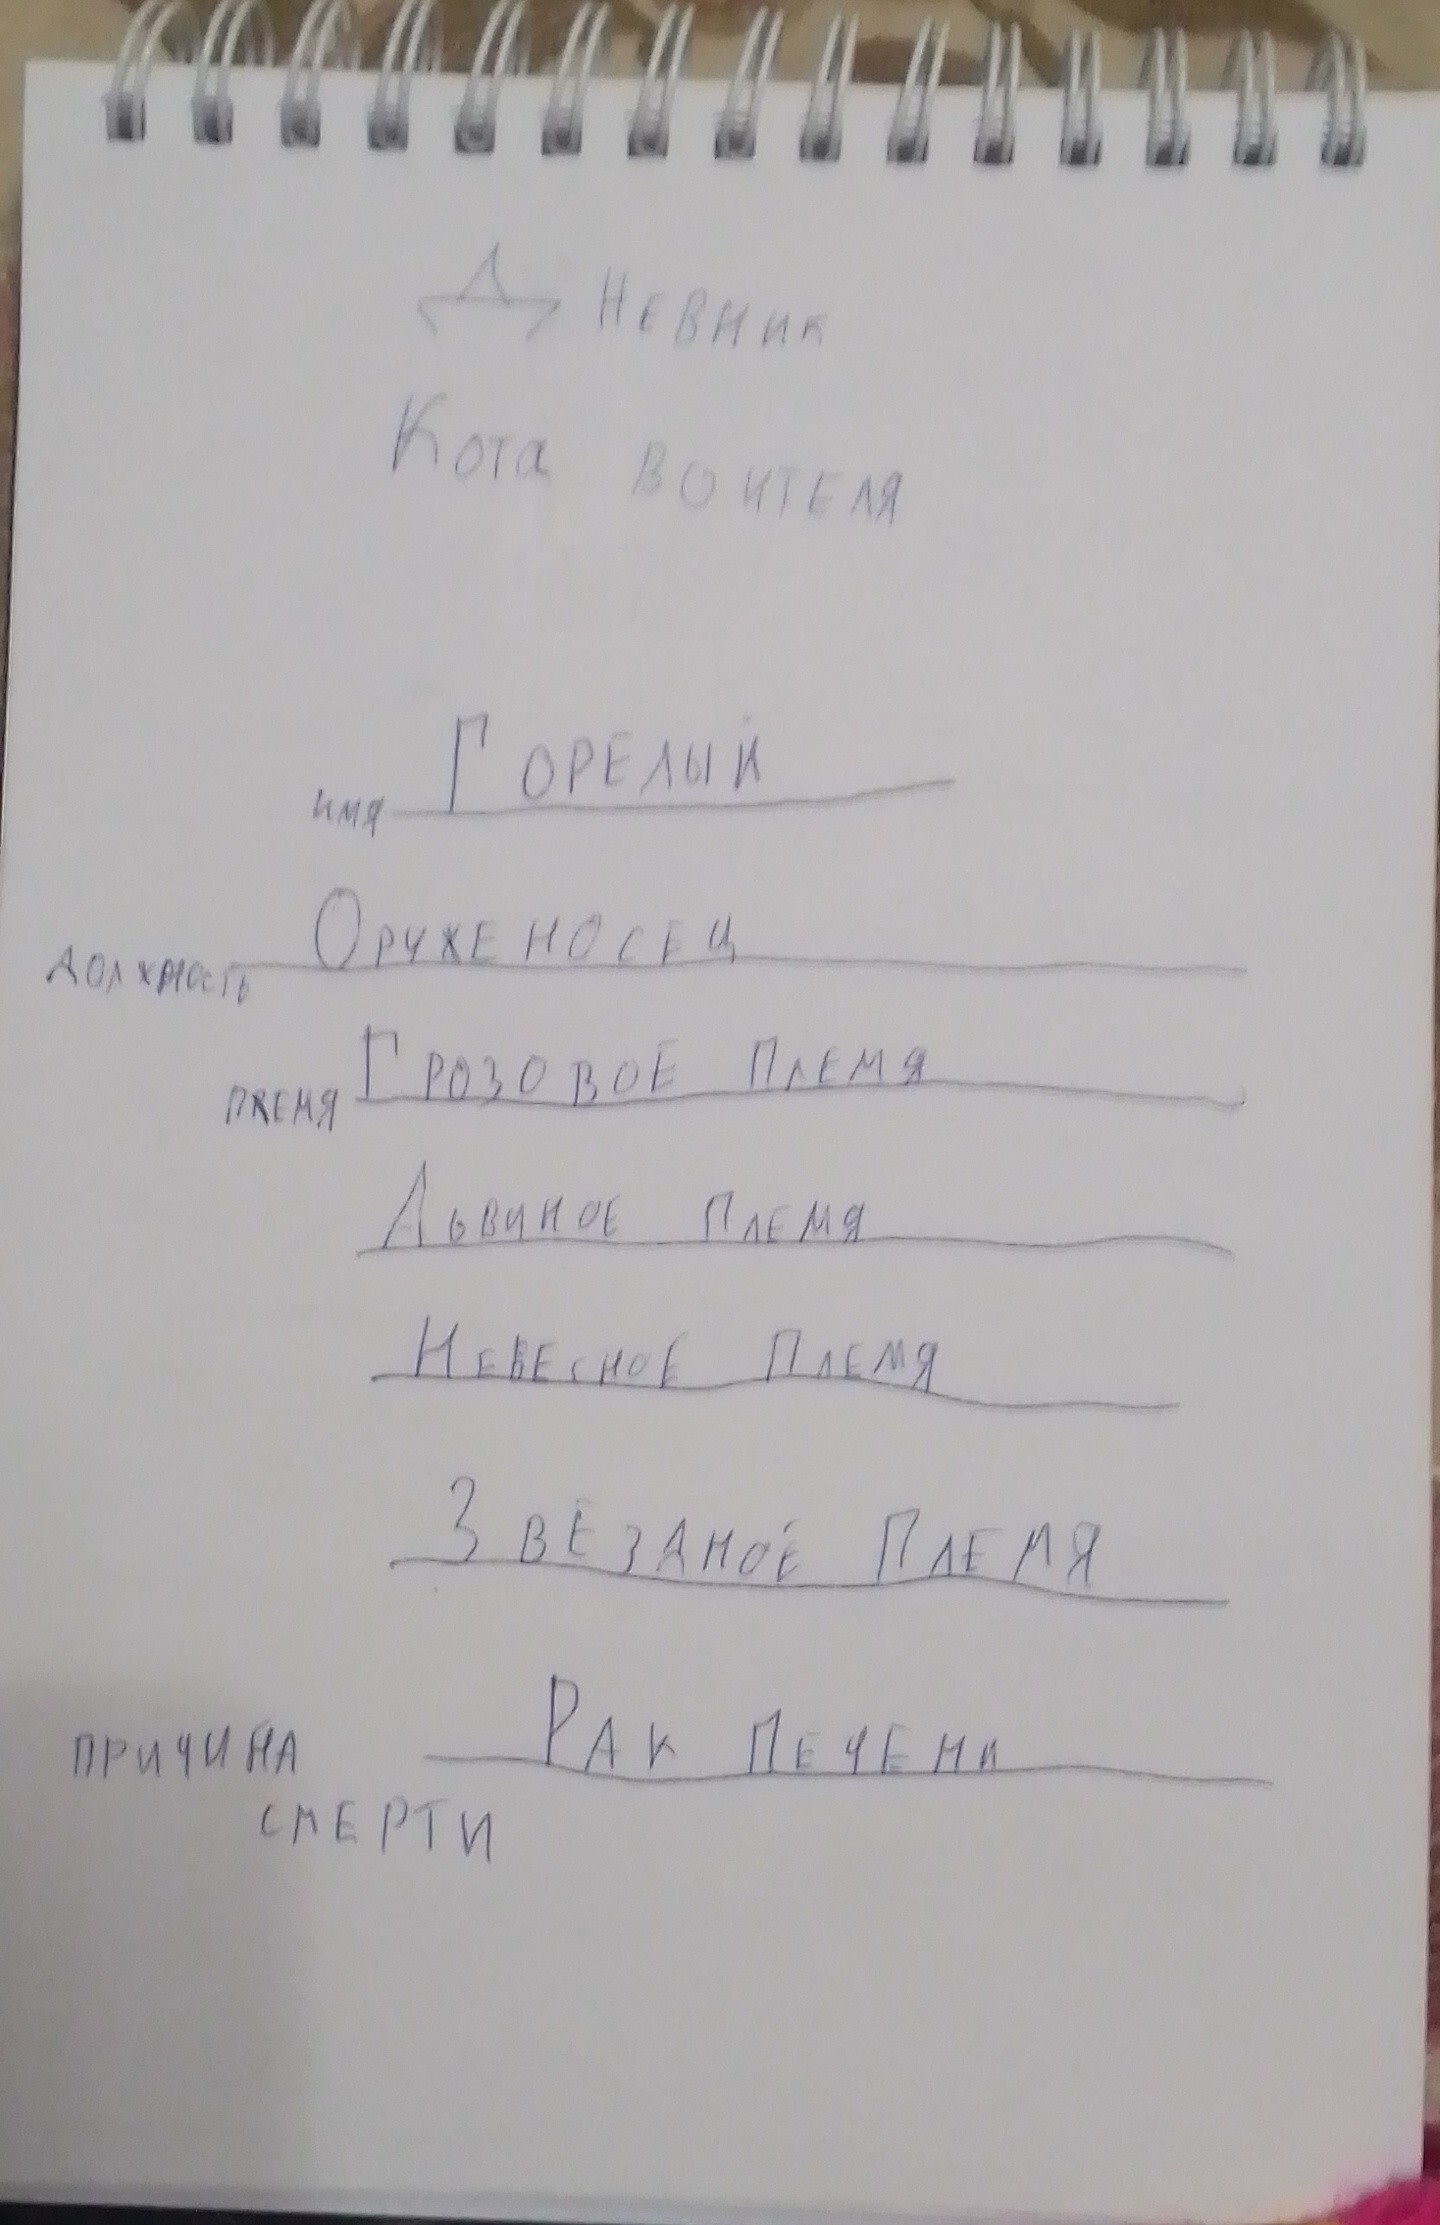 Дневник
Кота воителя
имя Горелый
должность Оруженосец
племя Грозовое Племя
Львиное Племя
Небесное Племя
Звездное Племя
причина Рак Печени
смерти